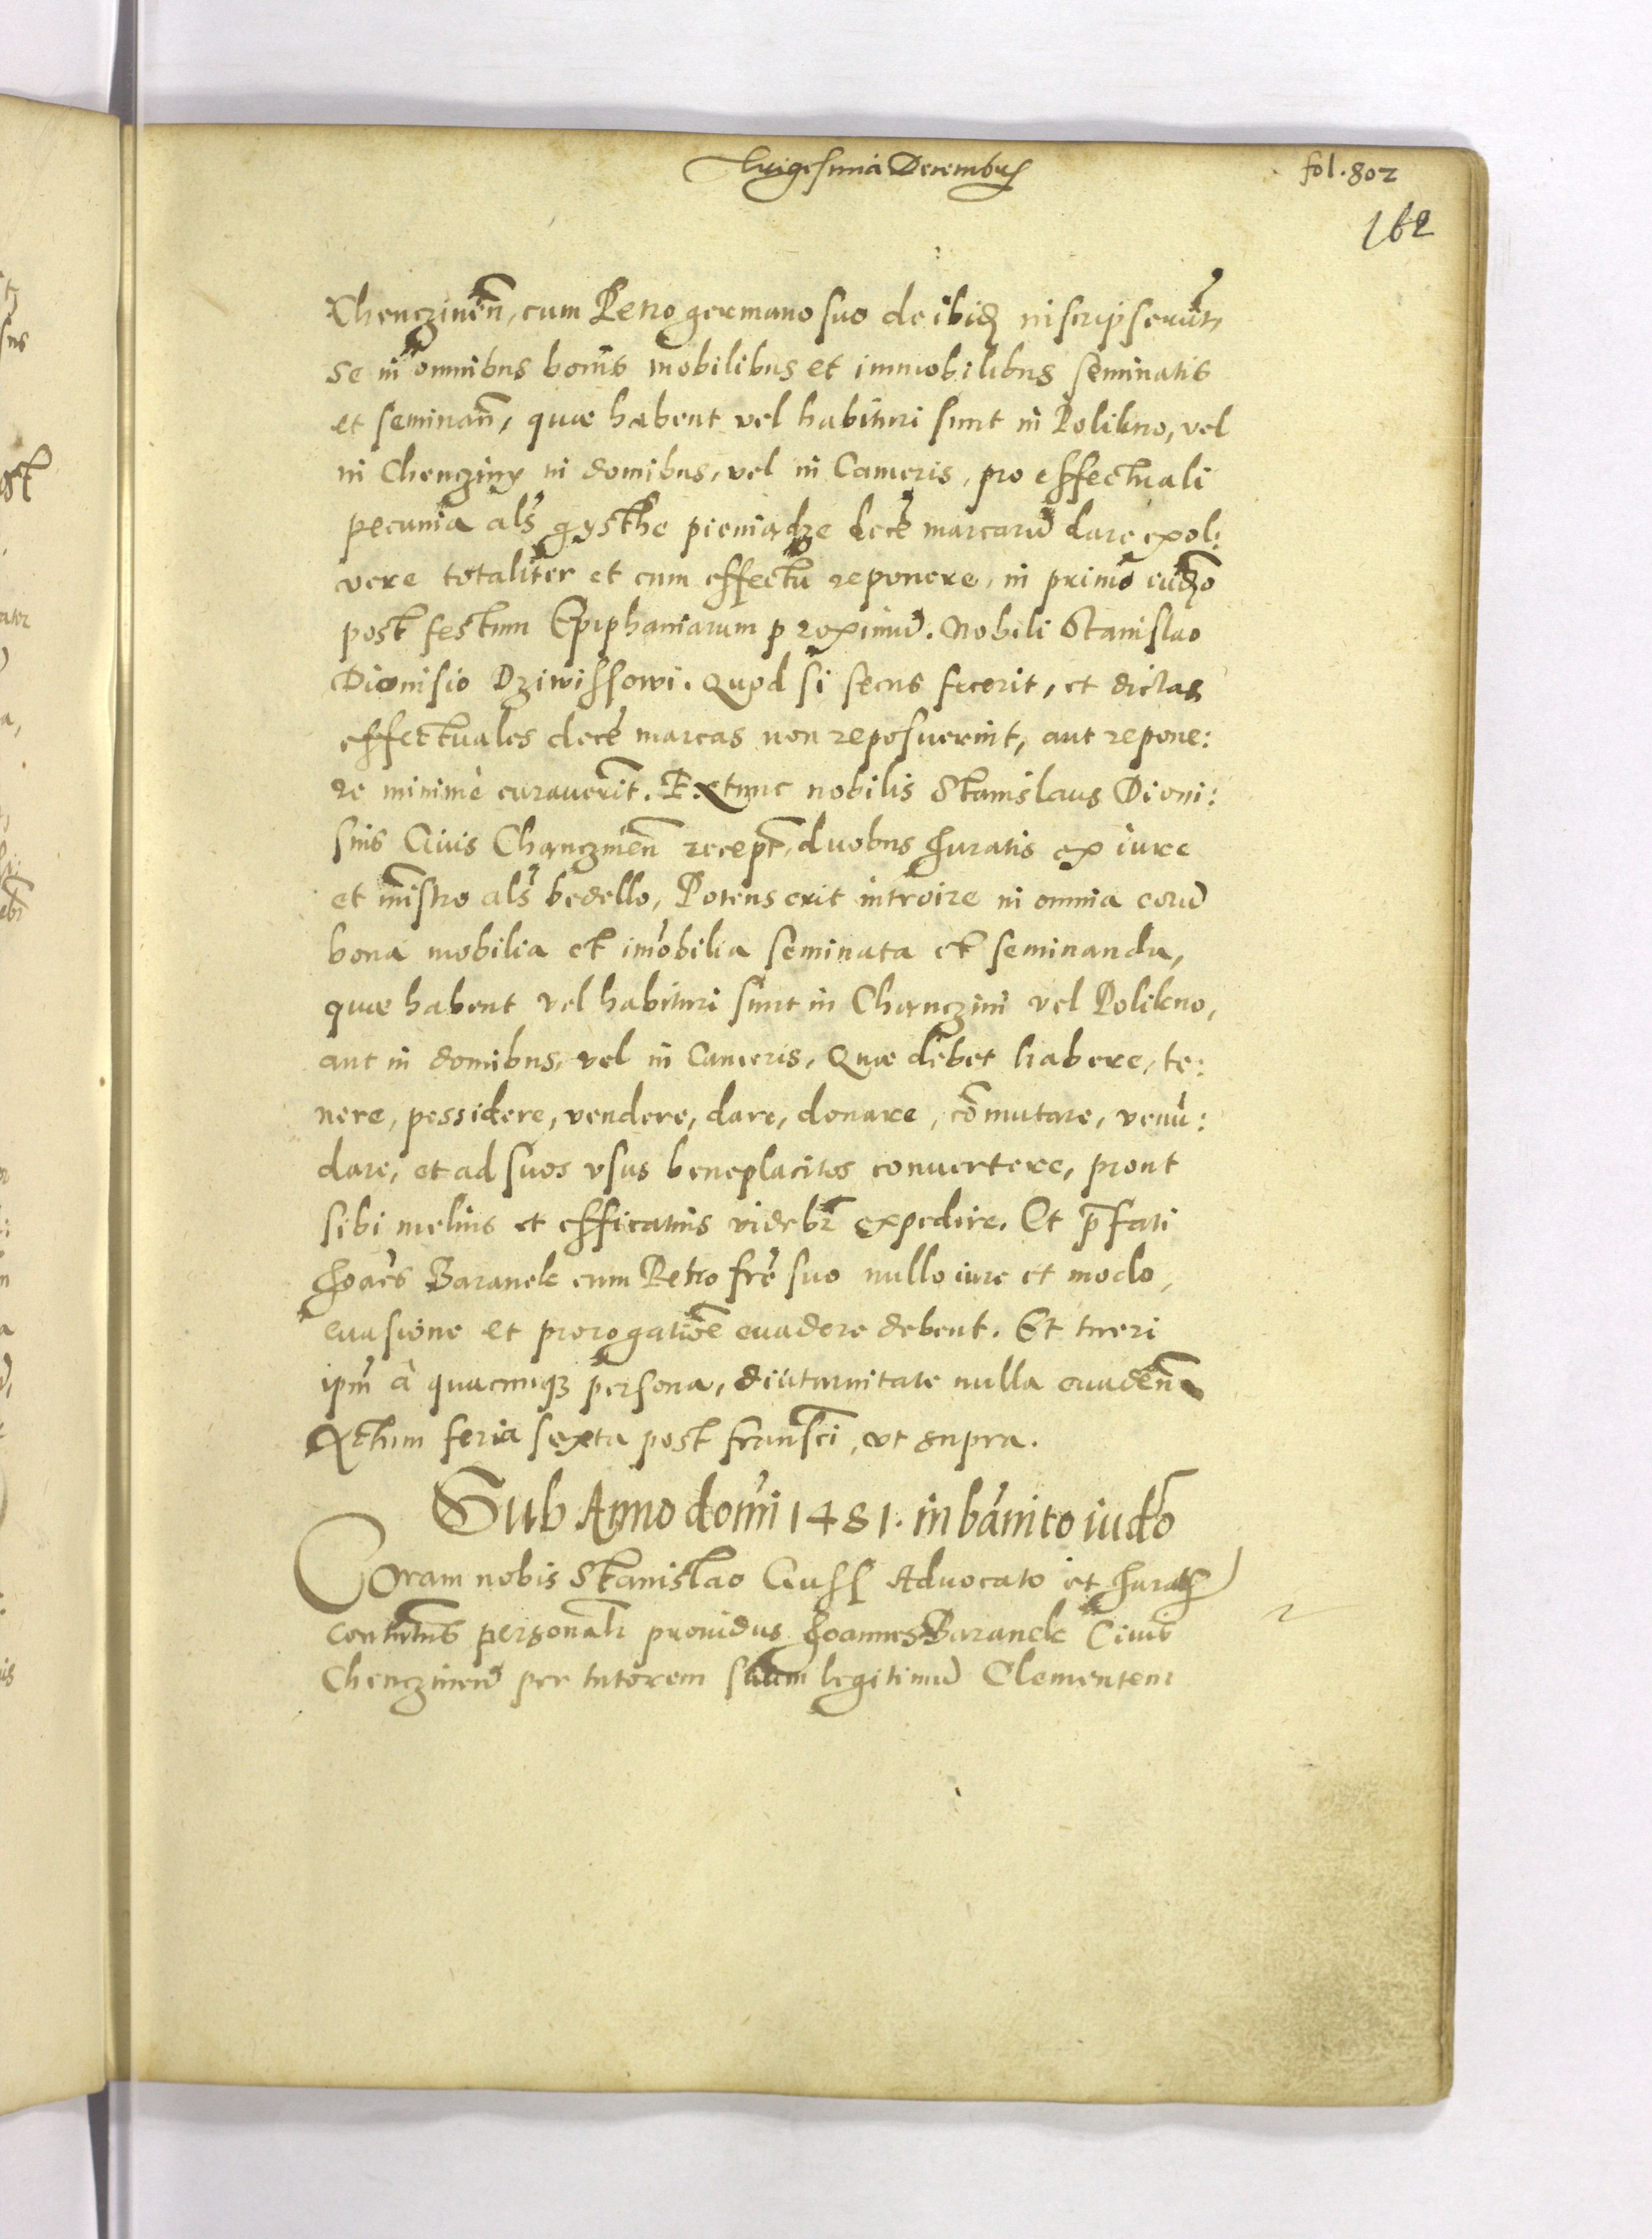 Vigesima Decembris
fol. 802
162
Chenczinen̄, cum Petro germano suo de ibid inscripserūt,
se in omnibus bonis mobilibus et immobilibus seminatis
et seminan̄, quæ habent vel habituri sunt in Polikno, vel
in Chencziny in domibus, vel in Cameris, pro effectuali
pecunia als gysthe pieniądze decē marcarū dare, exol:
vere totaliter et cum effectu reponere, in primo iudo
post festum Epiphaniarum proximū. Nobili Stanislao
Dionisio Dziwissowi. Quod si secus fecerit, et dictas
effectuales decē marcas non reposuerint, aut repone:
re minimè curauerit. Extunc nobilis Stanislaus Dioni:
sius Ciuis Chęnczinen̄ recept, duobus Juratis ex iure
et mīstro als bedello, Potens erit introire in omnia eorū
bona mobilia et imobilia seminata et seminanda,
quæ habent vel habituri sunt in Chęnczini vel Polikno,
aut in domibus, vel in Cameris, Quæ debet habere, te:
nere, possidere, vendere, dare, donare, cōmutare, venū:
dare, et ad suos vsus beneplacitos conuertere, prout
sibi melius et efficatius videbr̄ expedire. Et p̄fati
Joaēs Baranek cum Petro frē suo nullo iure et modo,
euasione et prorogatiōe euadere debent. Et tueri
ipm̄ à quacunq; persona, diuturnitate nulla euaden̄
Actum feria sexta post fransci, vt supra.
Sub Anno domi 1481. in banito iudo
Coram nobis Stanislao Guss Aduocato et Juratis
contutus personalr prouidus Joannes Baranek Ciuis
Chenczinen̄ per tutorem suum legitimū Clementem